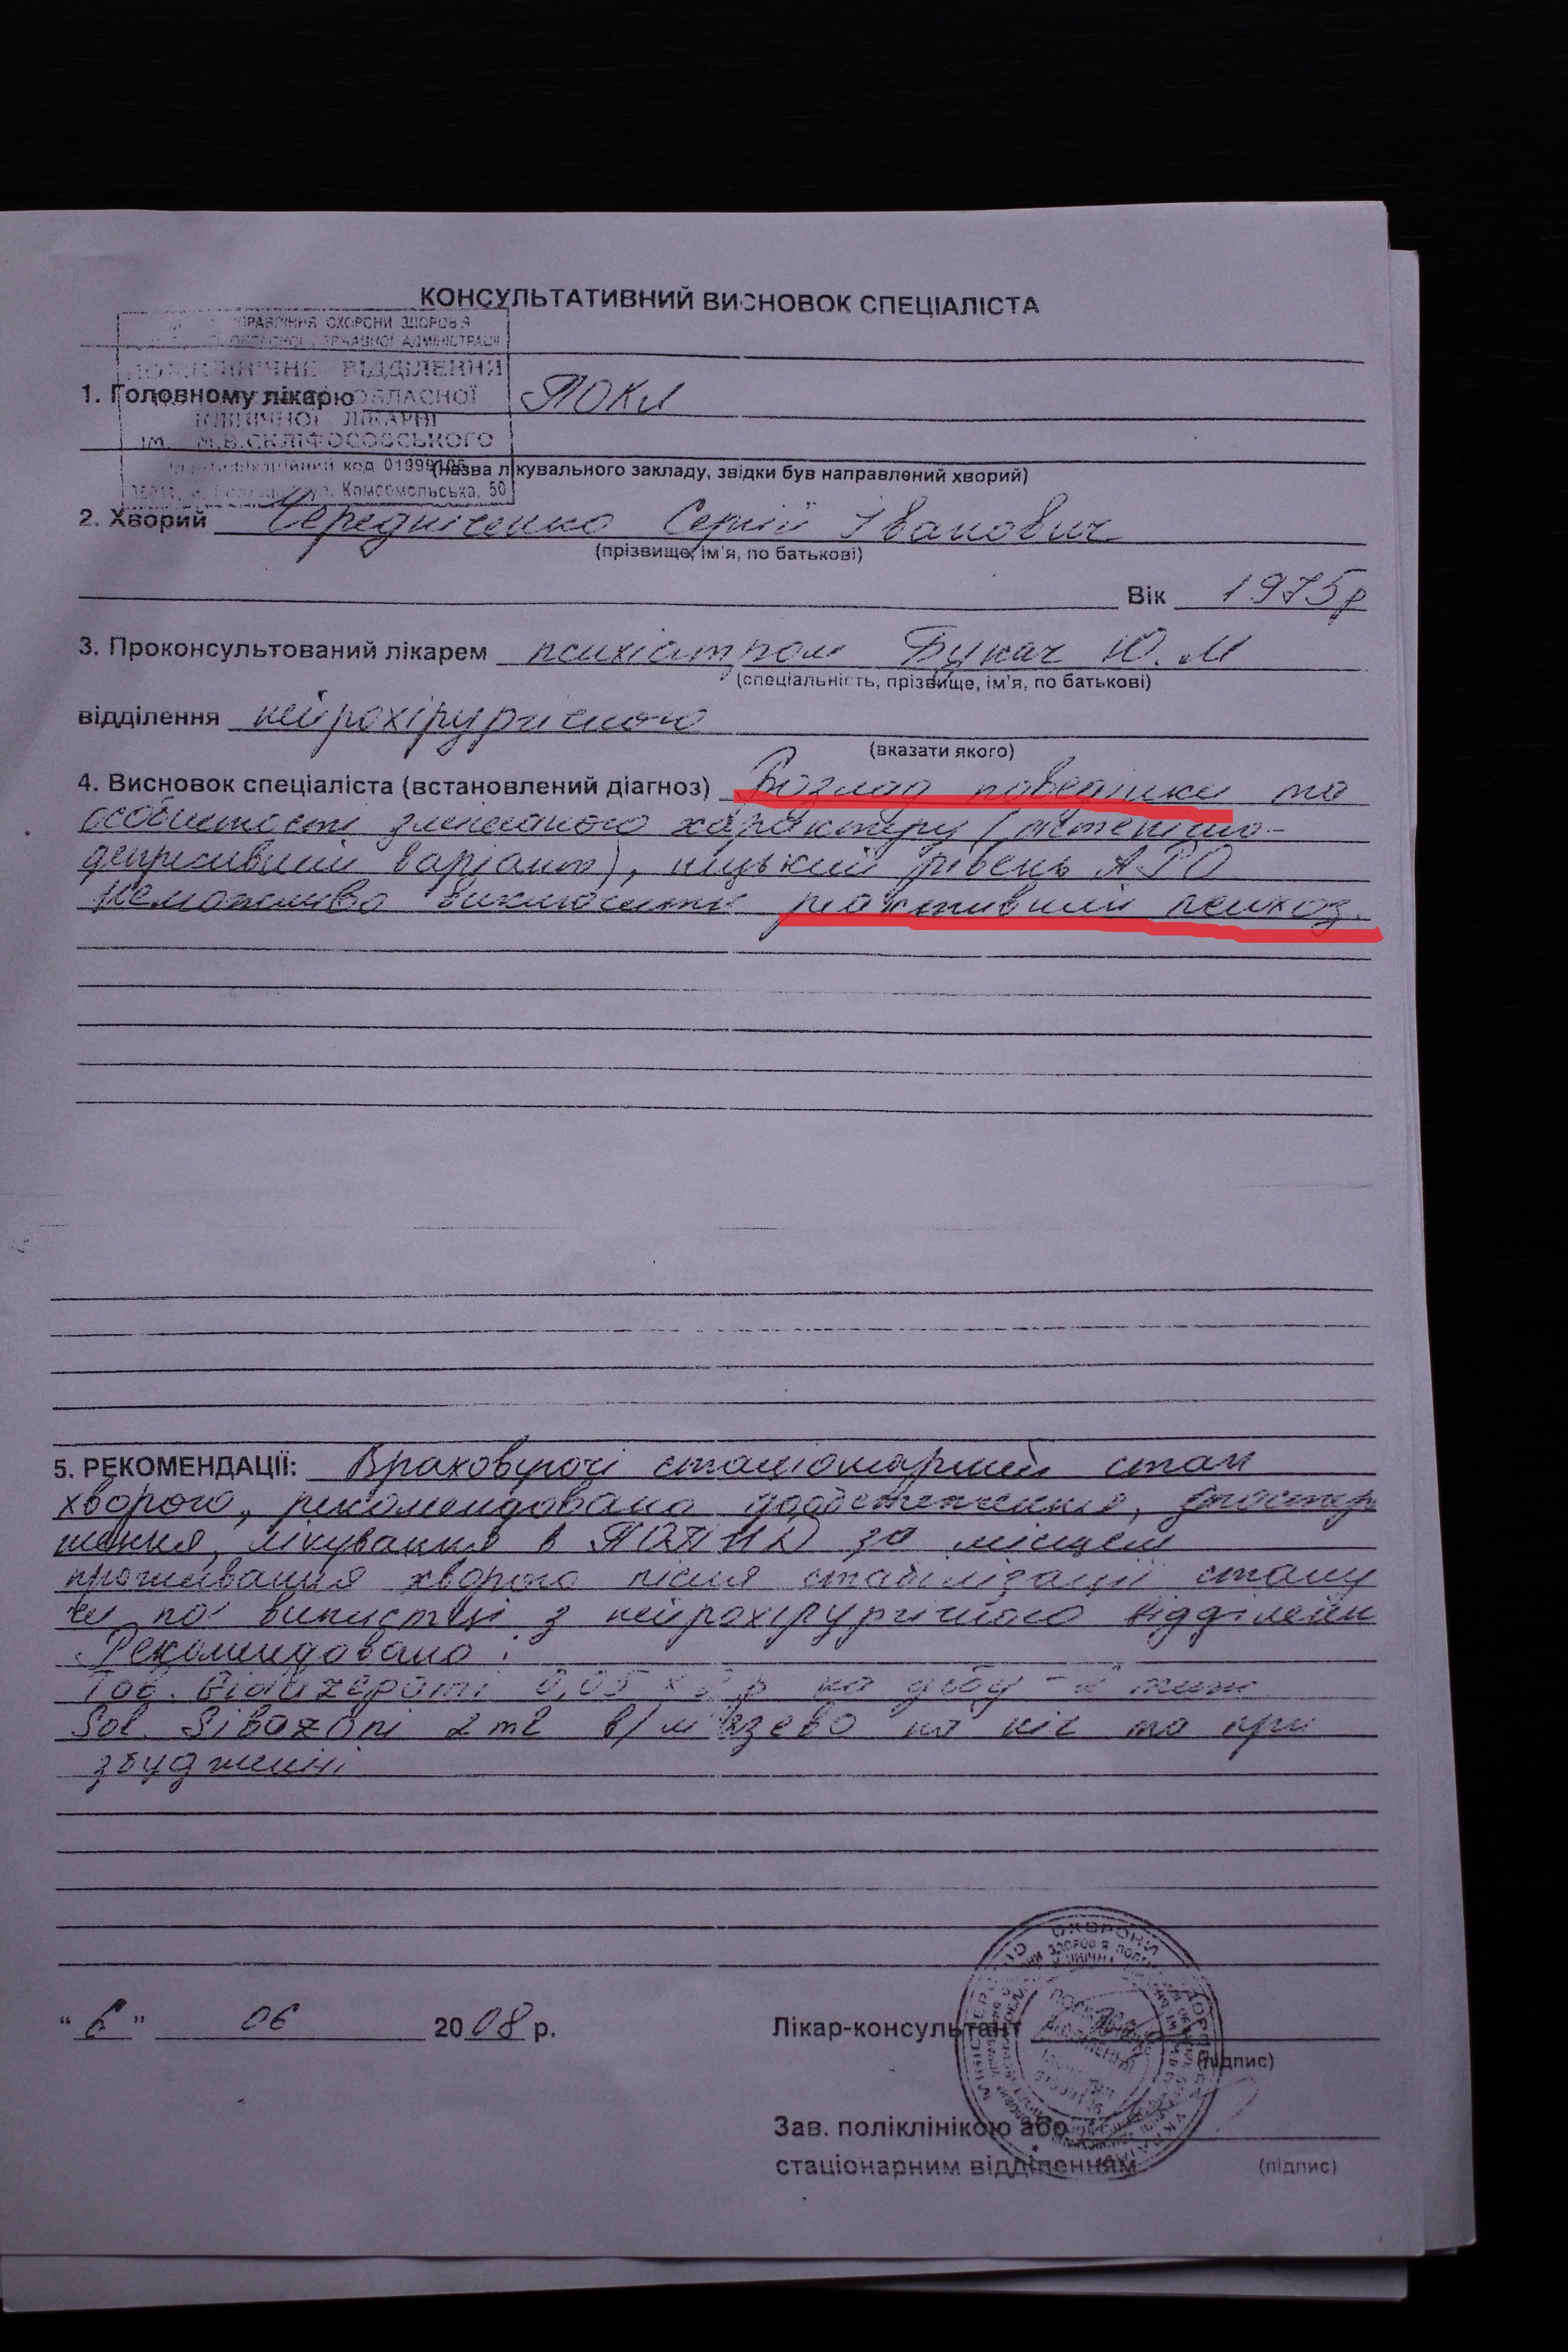 КОНСУЛЬТАТИВНИЙ ВИСНОВОК СПЕЦІАЛІСТА
УПРАВЛІННЯ ОХОРОНИ ЗДОРОВ'Я
ОБЛАСНОЇ ДЕРЖАВНОЇ АДМІНІСТРАЦІЇ
ПОЛІКЛІНІЧНЕ ВІДДІЛЕННЯ
ОБЛАСНОЇ
КЛІНІЧНОЇ ЛІКАРНІ
ім. М.В.СКЛІФОСОВСЬКОГО
Ідентифікаційний код 01999106
вул. Комсомольська, 50
1. Головному лікарю ПОКЛ
(назва лікувального закладу, звідки був направлений хворий)
2. Хворий Чередніченко Сергій Іванович
(прізвище, ім'я, по батькові)
Вік 1975р
3. Проконсультований лікарем психіатром Ю. М
(спеціальність, прізвище, ім'я, по батькові)
відділення нейрохірургічного
(вказати якого)
4. Висновок спеціаліста (встановлений діагноз) Розлад поведінки та
особистості змішаного характеру (астенічно-
депресивний варіант), низький рівень
Неможливо виключити реактивний психоз.
5. РЕКОМЕНДАЦІЇ: Враховуючі стаціонарний стан
хворого, рекомендовано дообстеження, спостере
ження, лікування в за місцем
проживання хворого після стабілізації стану
чи по виписці з нейрохірургічного відділенн
Рекомендовано:
Таб. 0,05 х р на добу
Sol. Sibazoni 2 ml в/м'язево на ніч та при
збудженні
"6" 06 2008 р.
Лікар-консультант
(підпис)
Зав. поліклінікою або
стаціонарним відділенням
(підпис)